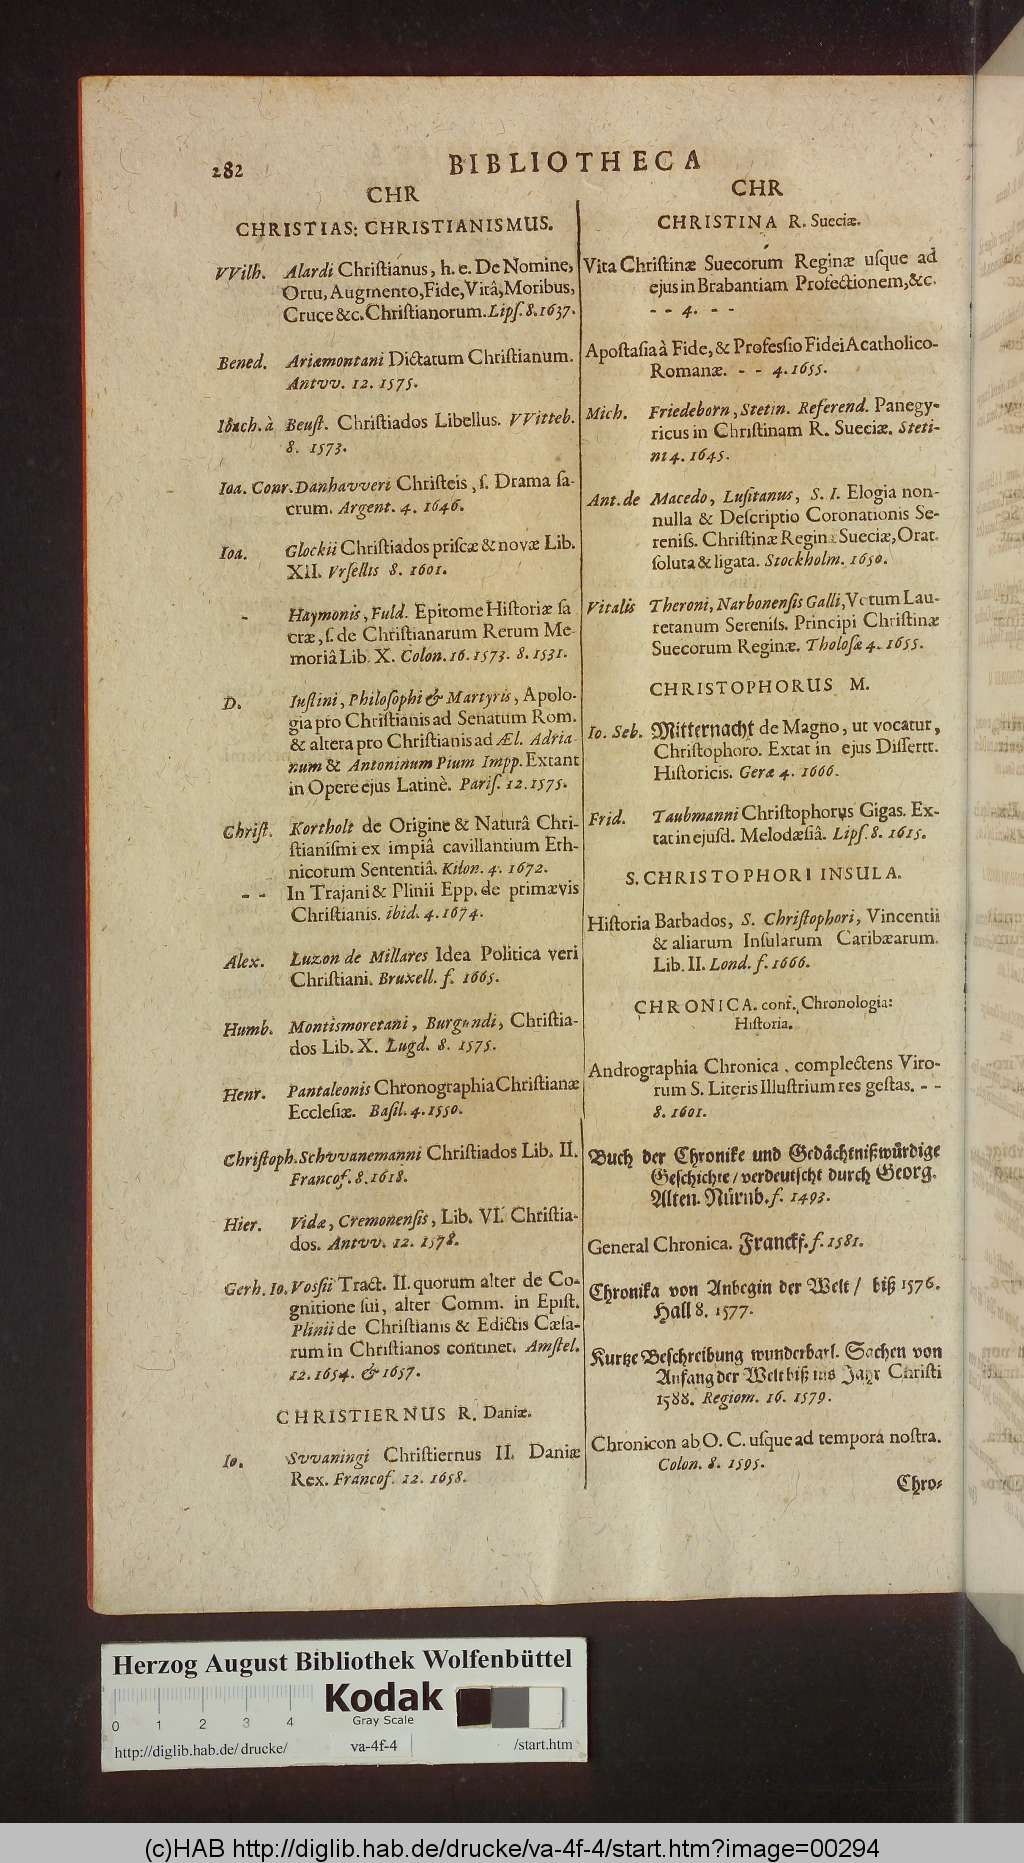 282
BIBLIOTHECA
CHR
CHRISTIAS: CHRISTIANISMUS.
VVilh. Alardi Christianus, h. e. De Nomine,
Ortu, Augmento, Fide, Vitâ, Moribus,
Cruce &c. Christianorum. Lipſ. 8. 1637.
Bened. Ariæmontani Dictatum Chriſtianum.
Antvv. 12. 1575.
Ioach. à Beuſt. Chriſtiados Libellus. VVitteb.
8. 1573.
Ioa. Conr. Danhavveri Chriſteis, ſ. Drama ſa-
crum. Argent. 4. 1646.
Ioa. Glockii Chriſtiados priſcæ & novæ Lib.
XII. Vrſellis 8. 1601.
- Haymonis, Fuld. Epitome Hiſtoriæ ſa
cræ, ſ. de Chriſtianarum Rerum Me-
moriâ Lib. X. Colon. 16. 1573. 8. 1531.
D. Iuſtini, Philoſophi & Martyris, Apolo-
gia pro Chriſtianis ad Senatum Rom.
& altera pro Chriſtianis ad Æl. Adria-
num & Antoninum Pium Impp. Extant
in Opere ejus Latinè. Pariſ. 12. 1575.
Chriſt. Kortholt de Origine & Naturâ Chri-
ſtianiſmi ex impiâ cavillantium Eth-
nicorum Sententiâ. Kilon. 4. 1672.
- - In Trajani & Plinii Epp. de primævis
Chriſtianis. ibid. 4. 1674.
Alex. Luzon de Millares Idea Politica veri
Chriſtiani. Bruxell. f. 1665.
Humb. Montismoretani, Burgundi, Chriſtia-
dos Lib. X. Lugd. 8. 1575.
Henr. Pantaleonis Chronographia Chriſtianæ
Eccleſiæ. Baſil. 4. 1550.
Chriſtoph. Schvvanemanni Chriſtiados Lib. II.
Francof. 8. 1618.
Hier. Vidæ, Cremonenſis, Lib. VI. Chriſtia-
dos. Antvv. 12. 1578.
Gerh. Io. Voſſii Tract. II. quorum alter de Co-
gnitione ſui, alter Comm. in Epiſt.
Plinii de Chriſtianis & Edictis Cæſa-
rum in Chriſtianos continet. Amſtel.
12. 1654. & 1657.
CHRISTIERNUS R. Daniæ.
Io. Svvaningi Chriſtiernus II. Daniæ
Rex. Francof. 12. 1658.
CHR
CHRISTINA R. Sueciæ.
Vita Chriſtinæ Suecorum Reginæ uſque ad
ejus in Brabantiam Profectionem, &c.
- - 4. - -
Apoſtaſia à Fide, & Profeſſio Fidei Acatholico-
Romanæ. - - 4. 1655.
Mich. Friedeborn, Stetin. Referend. Panegy-
ricus in Chriſtinam R. Sueciæ. Steti-
ni 4. 1645.
Ant. de Macedo, Luſitanus, S. I. Elogia non-
nulla & Deſcriptio Coronationis Se-
reniſſ. Chriſtinæ Reginæ Sueciæ, Orat.
ſoluta & ligata. Stockholm. 1650.
Vitalis Theroni, Narbonenſis Galli, Votum Lau-
retanum Sereniſs. Principi Chriſtinæ
Suecorum Reginæ. Tholoſæ 4. 1655.
CHRISTOPHORUS M.
Io. Seb. Mitternacht de Magno, ut vocatur,
Chriſtophoro. Extat in ejus Diſſertt.
Hiſtoricis. Geræ 4. 1666.
Frid. Taubmanni Chriſtophorus Gigas. Ex-
tat in ejuſd. Melodæſiâ. Lipſ. 8. 1615.
S. CHRISTOPHORI INSULA.
Hiſtoria Barbados, S. Chriſtophori, Vincentii
& aliarum Inſularum Caribæarum.
Lib. II. Lond. f. 1666.
CHRONICA. conf. Chronologia:
Hiſtoria.
Andrographia Chronica, complectens Viro-
rum S. Literis Illuſtrium res geſtas. - -
8. 1601.
Buch der Chronike und Gedächtnißwürdige
Geſchichte / verdeutſcht durch Georg.
Alten. Nürnb. f. 1493.
General Chronica. Franckf. f. 1581.
Chronika von Anbegin der Welt / biß 1576.
Hall 8. 1577.
Kurtze Beſchreibung wunderbarl. Sachen von
Anfang der Welt biß ins Jahr Chriſti
1588. Regiom. 16. 1579.
Chronicon ab O. C. uſque ad tempora noſtra.
Colon. 8. 1595.
Chro-
Herzog August Bibliothek Wolfenbüttel
Kodak
Gray Scale
0 1 2 3 4
http://diglib.hab.de/drucke/ va-4f-4 /start.htm
(c)HAB http://diglib.hab.de/drucke/va-4f-4/start.htm?image=00294